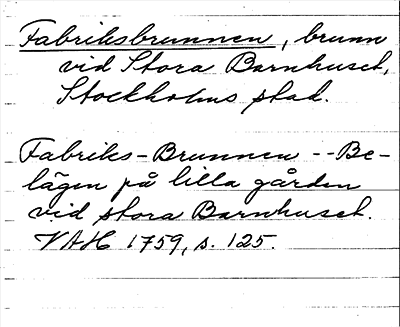 Fabriksbrunnen, brunn
vid Stora Barnhuset,
Stockholms stad.
Fabriks-Brunnen -- Be-
lägen på lilla gården
vid stora Barnhuset.
VAH 1759, s. 125.